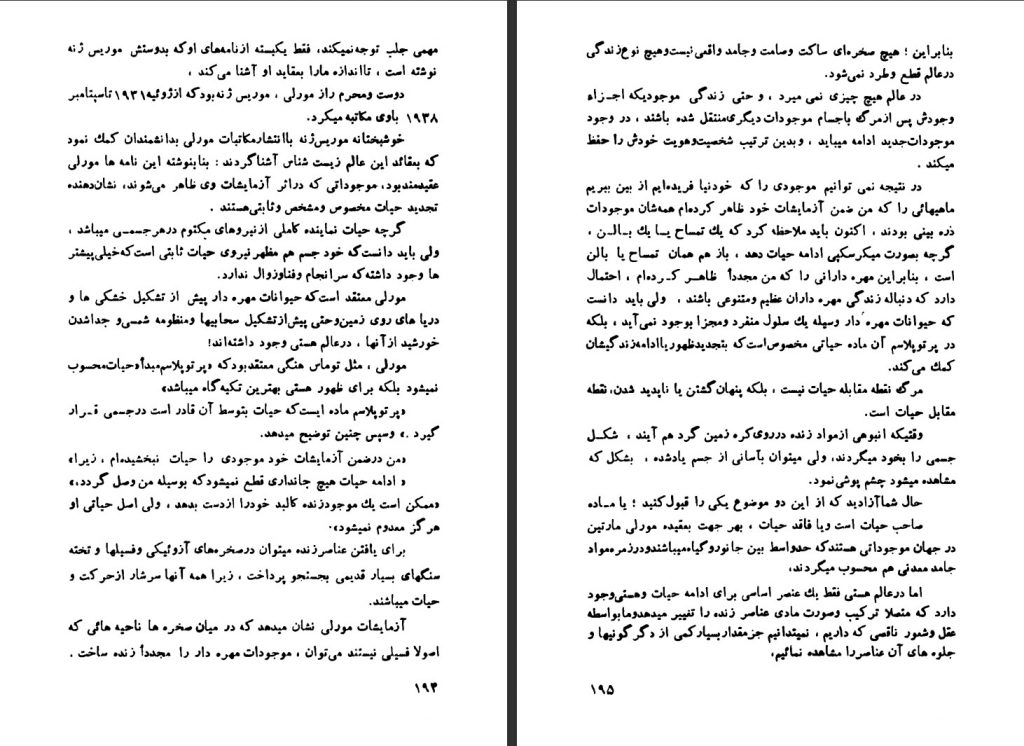 مهمی جلب توجه نمیکند، فقط یکبسته ازنامه‌های اوکه بدوستش موریس ژنه
نوشته است ، تااندازه مارا بعقاید او آشنا می‌کند ،
دوست ومحرم راز مورلی ، موریس ژنه بودکه ازژوئیه ۱۹۳۱ تاسپتامبر
۱۹۳۸ باوی مکاتبه میکرد.
خوشبختانه موریس‌ژنه باانتشارمکاتبات مورلی بدانشمندان کمك نمود
که بعقائد این عالم زیست شناس آشناگردند : بنابنوشته این نامه ها مورلی
عقیدمندبود، موجوداتی که دراثر آزمایشات وی ظاهر می‌شوند، نشان‌دهنده
تجدید حیات مخصوص ومشخص وثابتی‌هستند .
گرچه حیات نماینده کاملی ازنیروهای مکتوم درهرجسمـی میباشد ،
ولی باید دانست‌که خود جسم هم مظهر نیروی حیات ثابتی است‌که‌خیلی‌پیشتر
ها وجود داشته‌که سرانجام وفناوزوال ندارد.
مورلی معتقد است‌که حیوانات مهره دار پیش از تشکیل خشکی ها و
دریا های روی زمین‌وحتی پیش‌ازتشکیل سحابیها ومنظومه شمسی‌و جداشدن
خورشید ازآنها ، درعالم هستی وجود داشته‌اند!
مورلی ، مثل توماس هنگی معتقدبودکه «پرتوپلاسم‌مبدأ‌حیات‌محسوب
نمیشود بلکه برای ظهور هستی بهترین تکیه‌گاه میباشد»
«پرتوپلاسم ماده ایست‌که حیات بتوسط آن قادر است درجسمی قـرار
گیرد .» وسپس چنین توضیح میدهد.
«من درضمن آزمایشات خود موجودی را حیات نبخشیده‌ام ، زیرا»
« ادامه حیات هیچ جانداری قطع نمیشودکه بوسیله من وصل گردد،»
«ممکن است یك موجودزنده کالبد خودرا ازدست بدهد ، ولی اصل حیاتی او
هرگز معدوم نمیشود».
برای یافتن عناصرزنده میتوان درصخره‌های آزوئیکی وفسیلها و تخته
سنگهای بسیار قدیمی بجستجو پرداخت ، زیرا همه آنها سرشار ازحرکت و
حیات میباشند.
آزمایشات مورلی نشان میدهد که در میان صخره ها ناحیه هائی که
اصولا فسیلی نیستند می‌توان ، موجودات مهره دار را مجدداً زنده ساخت .
۱۹۴
بنابراین ؛ هیچ صخره‌ای ساکت وصامت وجامد واقعی‌نیست‌وهیچ نوع‌زندگی
درعالم قطع وطرد نمی‌شود.
در عالم هیچ چیزی نمی میرد ، و حتی زندگی موجودیکه اجـزاء
وجودش پس ازمرگ باجسام موجودات دیگری‌منتقل شده باشند ، در وجود
موجودات‌جدید ادامه میبابد ، وبدین ترتیب شخصیت‌وهویت خودش را حفظ
میکند .
در نتیجه نمی توانیم موجودی را که خودنیا فریده‌ایم از بین ببریم
ماهیهائی را که من ضمن آزمایشات خود ظاهر کرده‌ام همه‌شان موجودات
ذره بینی بودند ، اکنون باید ملاحظه کرد که یك تمساح یـا یك بـالـن ،
گرچه بصورت میکرسکپی ادامه حیات دهد ، باز هم همان تمساح یا بالن
است ، بنابراین مهره دارانی را که من مجدداً ظاهـر کـرده‌ام ، احتمال
دارد که دنباله زندگی مهره داران عظیم ومتنوعی باشند ، ولی باید دانست
که حیوانات مهره دار وسیله یك سلول منفرد ومجزا بوجود نمی‌آید ، بلکه
در پرتوپلاسم آن ماده حیاتی مخصوص‌است‌که بتجدیدظهوریاادامه‌زندگیشان
کمك می‌کند.
مرگ نقطه مقابله حیات نیست ، بلکه پنهان‌گشتن یا ناپدید شدن، نقطه
مقابل حیات است.
وقتیکه انبوهی ازمواد زنده درروی‌کره زمین گرد هم آیند ، شکـل
جسمی را بخود میگردند، ولی میتوان بآسانی از جسم یادشده ، بشکل که
مشاهده میشود چشم پوشی‌نمود.
حال شماآزادید که از این دو موضوع یکی را قبول‌کنید ؛ یا مـاده
صاحب حیات است ویا فاقد حیات ، بهر جهت بعقیده مورلی مارتین
در جهان موجوداتی هستندکه حدواسط بین جانوروگیاه‌میباشندودرزمره‌مواد
جامد معدنی هم محسوب میگردند،
اما درعالم هستی فقط یك عنصر اساسی برای ادامه حیات وهستی‌وجود
دارد که متصلا ترکیب وصورت مادی عناصر زنده را تغییر میدهدومابواسطه
عقل وشعور ناقصی که داریم ، نمیتوانیم جزمقداربسیارکمی از دگرگونیها و
جلوه های آن عناصررا مشاهده نمائیم،
۱۹۵